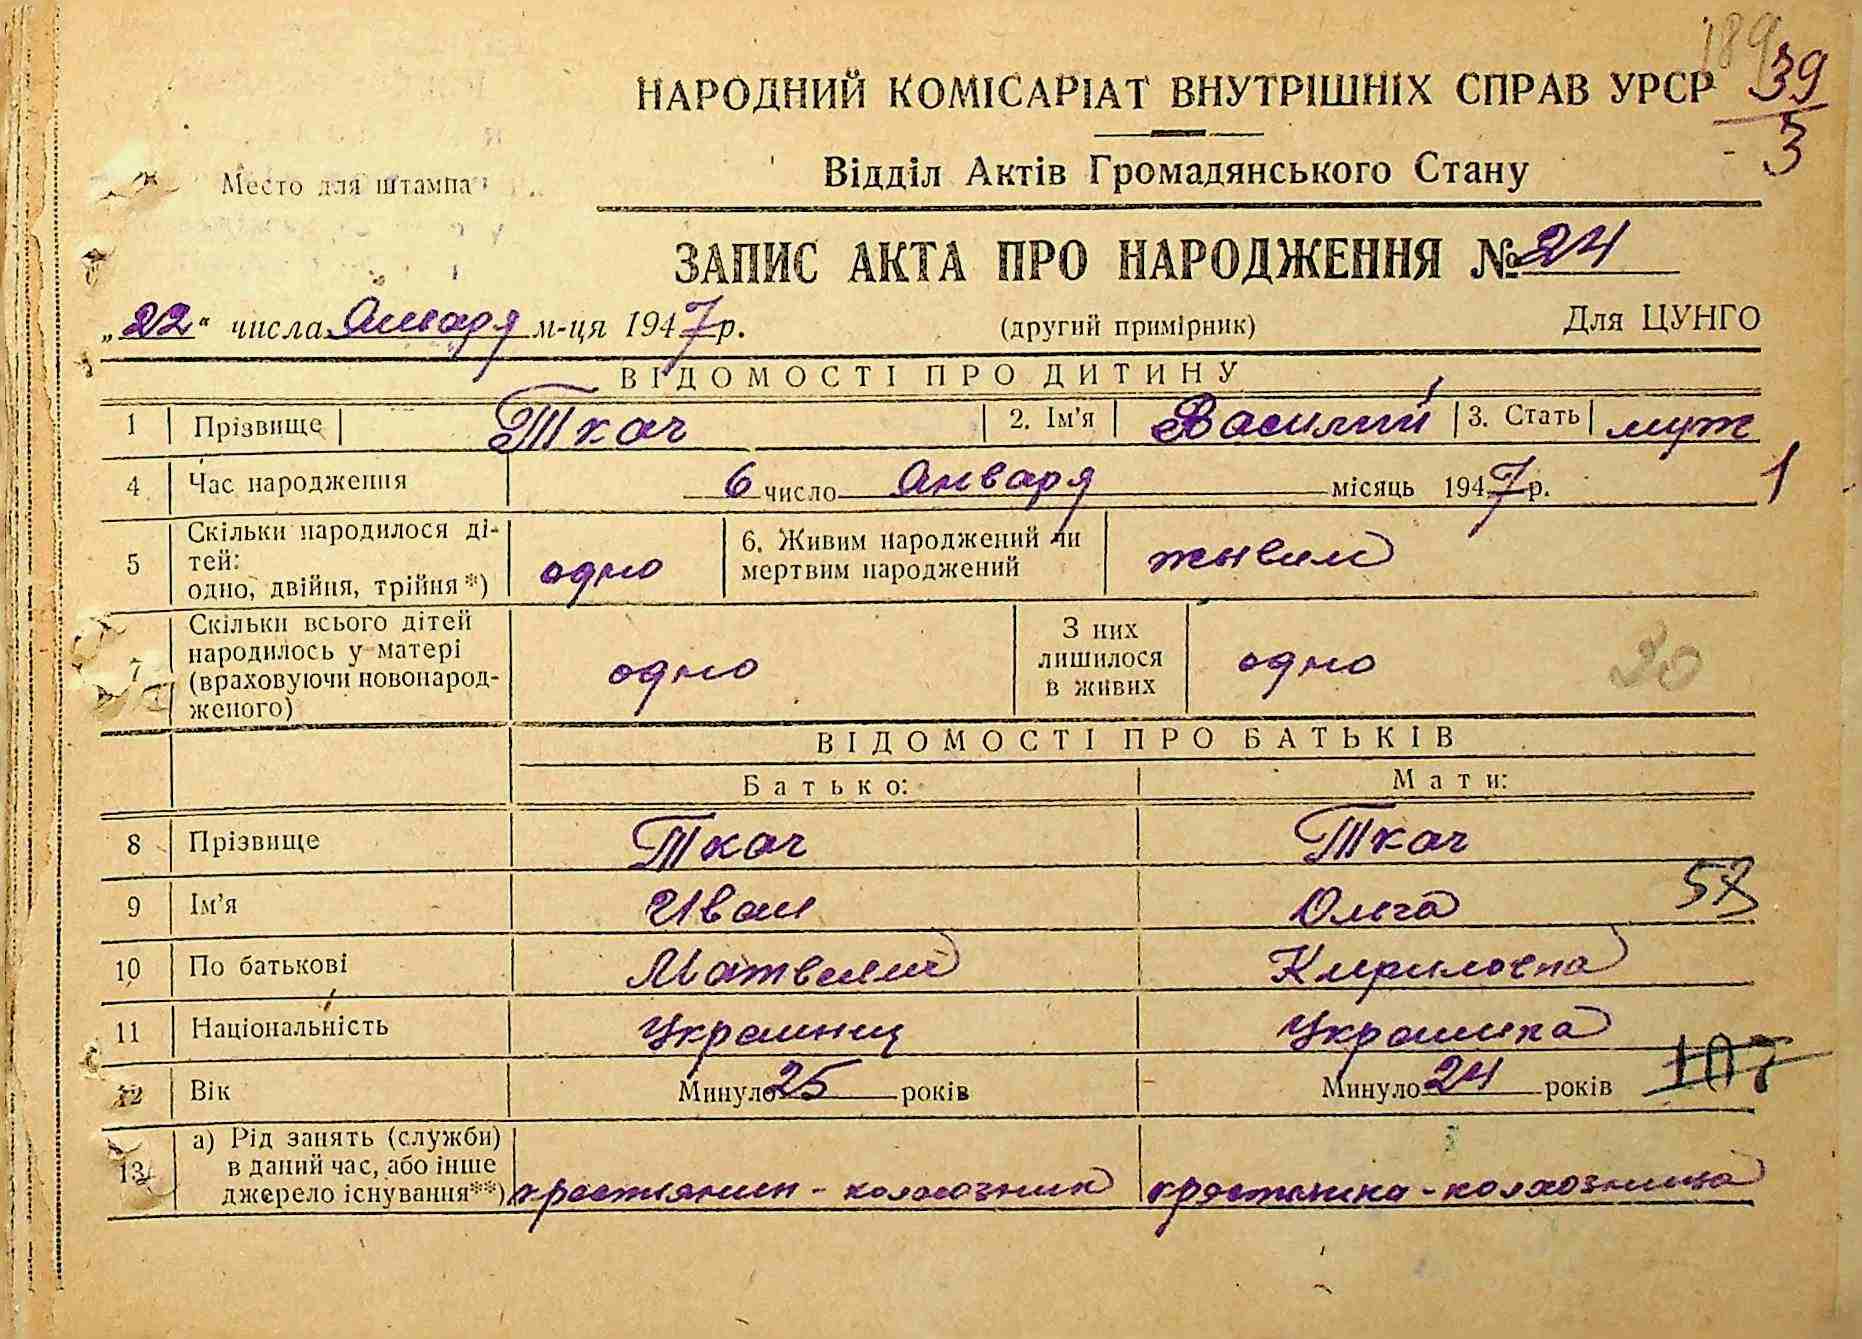 189
НАРОДНИЙ КОМІСАРІАТ ВНУТРІШНІХ СПРАВ УРСР 39
3
Відділ Актів Громадянського Стану
Место для штампа
ЗАПИС АКТА ПРО НАРОДЖЕННЯ № 24
„22“ числа Января м-ця 1947 р. (другий примірник) Для ЦУНГО
ВІДОМОСТІ ПРО ДИТИНУ
1 Прізвище Ткач 2. Ім’я Василий 3. Стать муж
4 Час народження 6 число Января місяць 1947 р. 1
5 Скільки народилося ді-
тей:
одно, двійня, трійня *) одно 6. Живим народжений чи
мертвим народжений живим
7 Скільки всього дітей
народилось у матері
(враховуючи новонарод-
женого) одно З них
лишилося
в живих одно 20
ВІДОМОСТІ ПРО БАТЬКІВ
Батько: Мати:
8 Прізвище Ткач Ткач
9 Ім’я Иван Ольга 57
10 По батькові Кириловна
11 Національність Украинец Украинка
12 Вік Минуло 25 років Минуло 24 років 107
13 а) Рід занять (служби)
в даний час, або інше
джерело існування**) крестьянин - колхозник крестьянка - колхозница